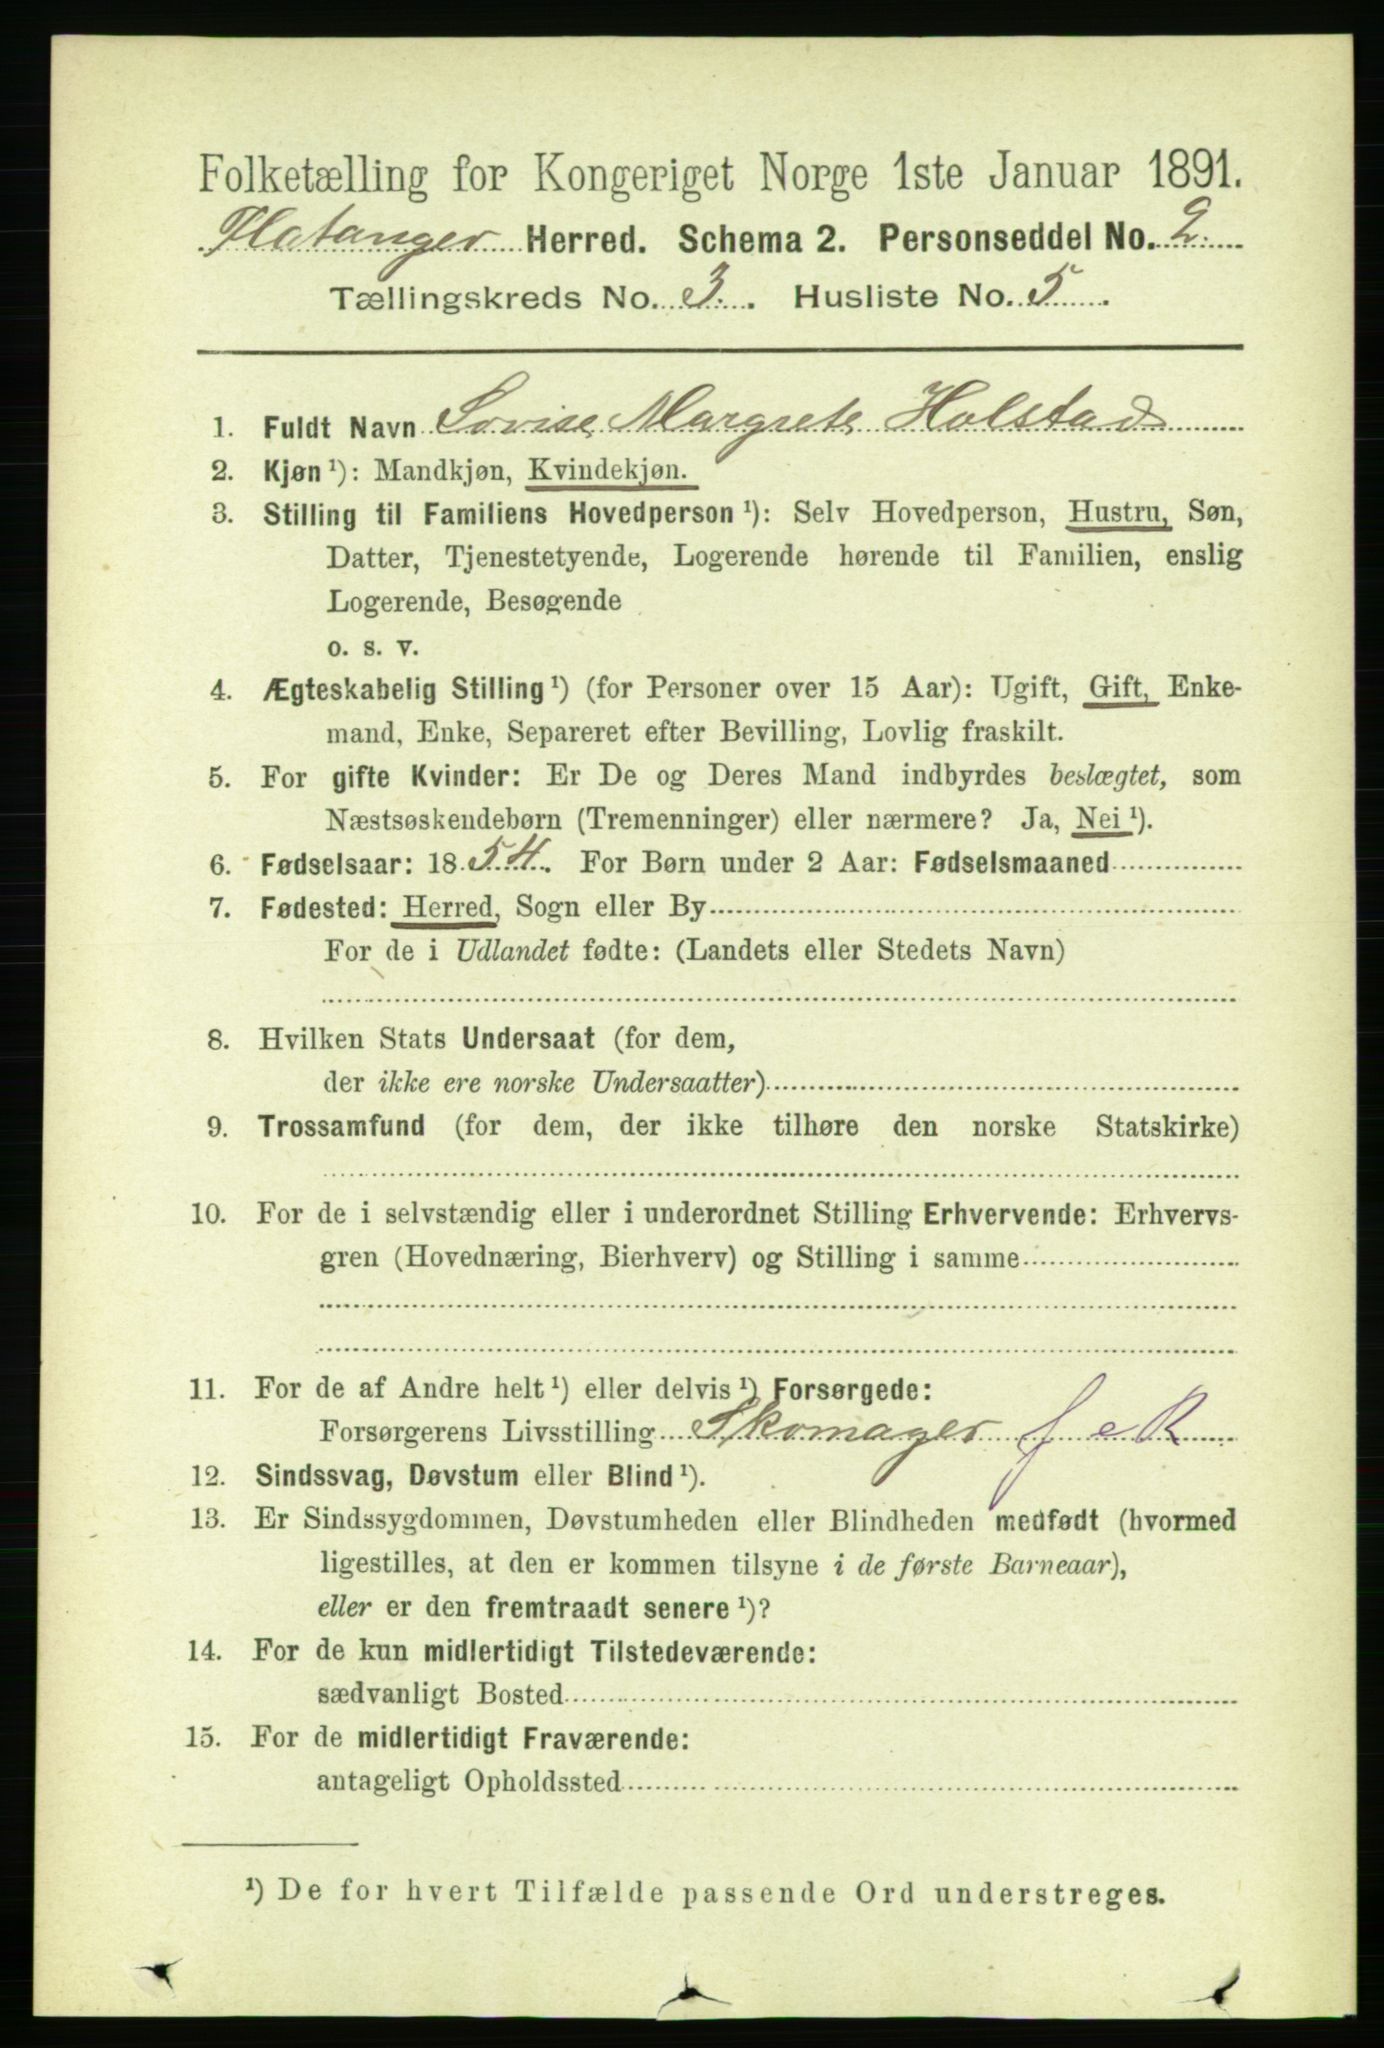 Folketælling for Kongeriget Norge 1ste Januar 1891.
Flatanger Herred. Schema 2. Personseddel No. 2.
Tællingskreds No. 3. Husliste No. 5
1. Fuldt Navn Lovise Margrete Holstad
2. Kjøn ¹): Mandkjøn, Kvindekjøn.
3. Stilling til Familiens Hovedperson ¹): Selv Hovedperson, Hustru, Søn,
Datter, Tjenestetyende, Logerende hørende til Familien, enslig
Logerende, Besøgende
o. s. v.
4. Ægteskabelig Stilling ¹) (for Personer over 15 Aar): Ugift, Gift, Enke-
mand, Enke, Separeret efter Bevilling, Lovlig fraskilt.
5. For gifte Kvinder: Er De og Deres Mand indbyrdes beslægtet, som
Næstsøskendebørn (Tremenninger) eller nærmere? Ja, Nei ¹).
6. Fødselsaar: 1854. For Børn under 2 Aar: Fødselsmaaned
7. Fødested: Herred, Sogn eller By
For de i Udlandet fødte: (Landets eller Stedets Navn)
8. Hvilken Stats Undersaat (for dem,
der ikke ere norske Undersaatter)
9. Trossamfund (for dem, der ikke tilhøre den norske Statskirke)
10. For de i selvstændig eller i underordnet Stilling Erhvervende: Erhvervs-
gren (Hovednæring, Bierhverv) og Stilling i samme
11. For de af Andre helt ¹) eller delvis ¹) Forsørgede:
Forsørgerens Livsstilling Skomager f e R
12. Sindssvag, Døvstum eller Blind ¹).
13. Er Sindssygdommen, Døvstumheden eller Blindheden medfødt (hvormed
ligestilles, at den er kommen tilsyne i de første Barneaar),
eller er den fremtraadt senere ¹)?
14. For de kun midlertidigt Tilstedeværende:
sædvanligt Bosted
15. For de midlertidigt Fraværende:
antageligt Opholdssted
¹) De for hvert Tilfælde passende Ord understreges.